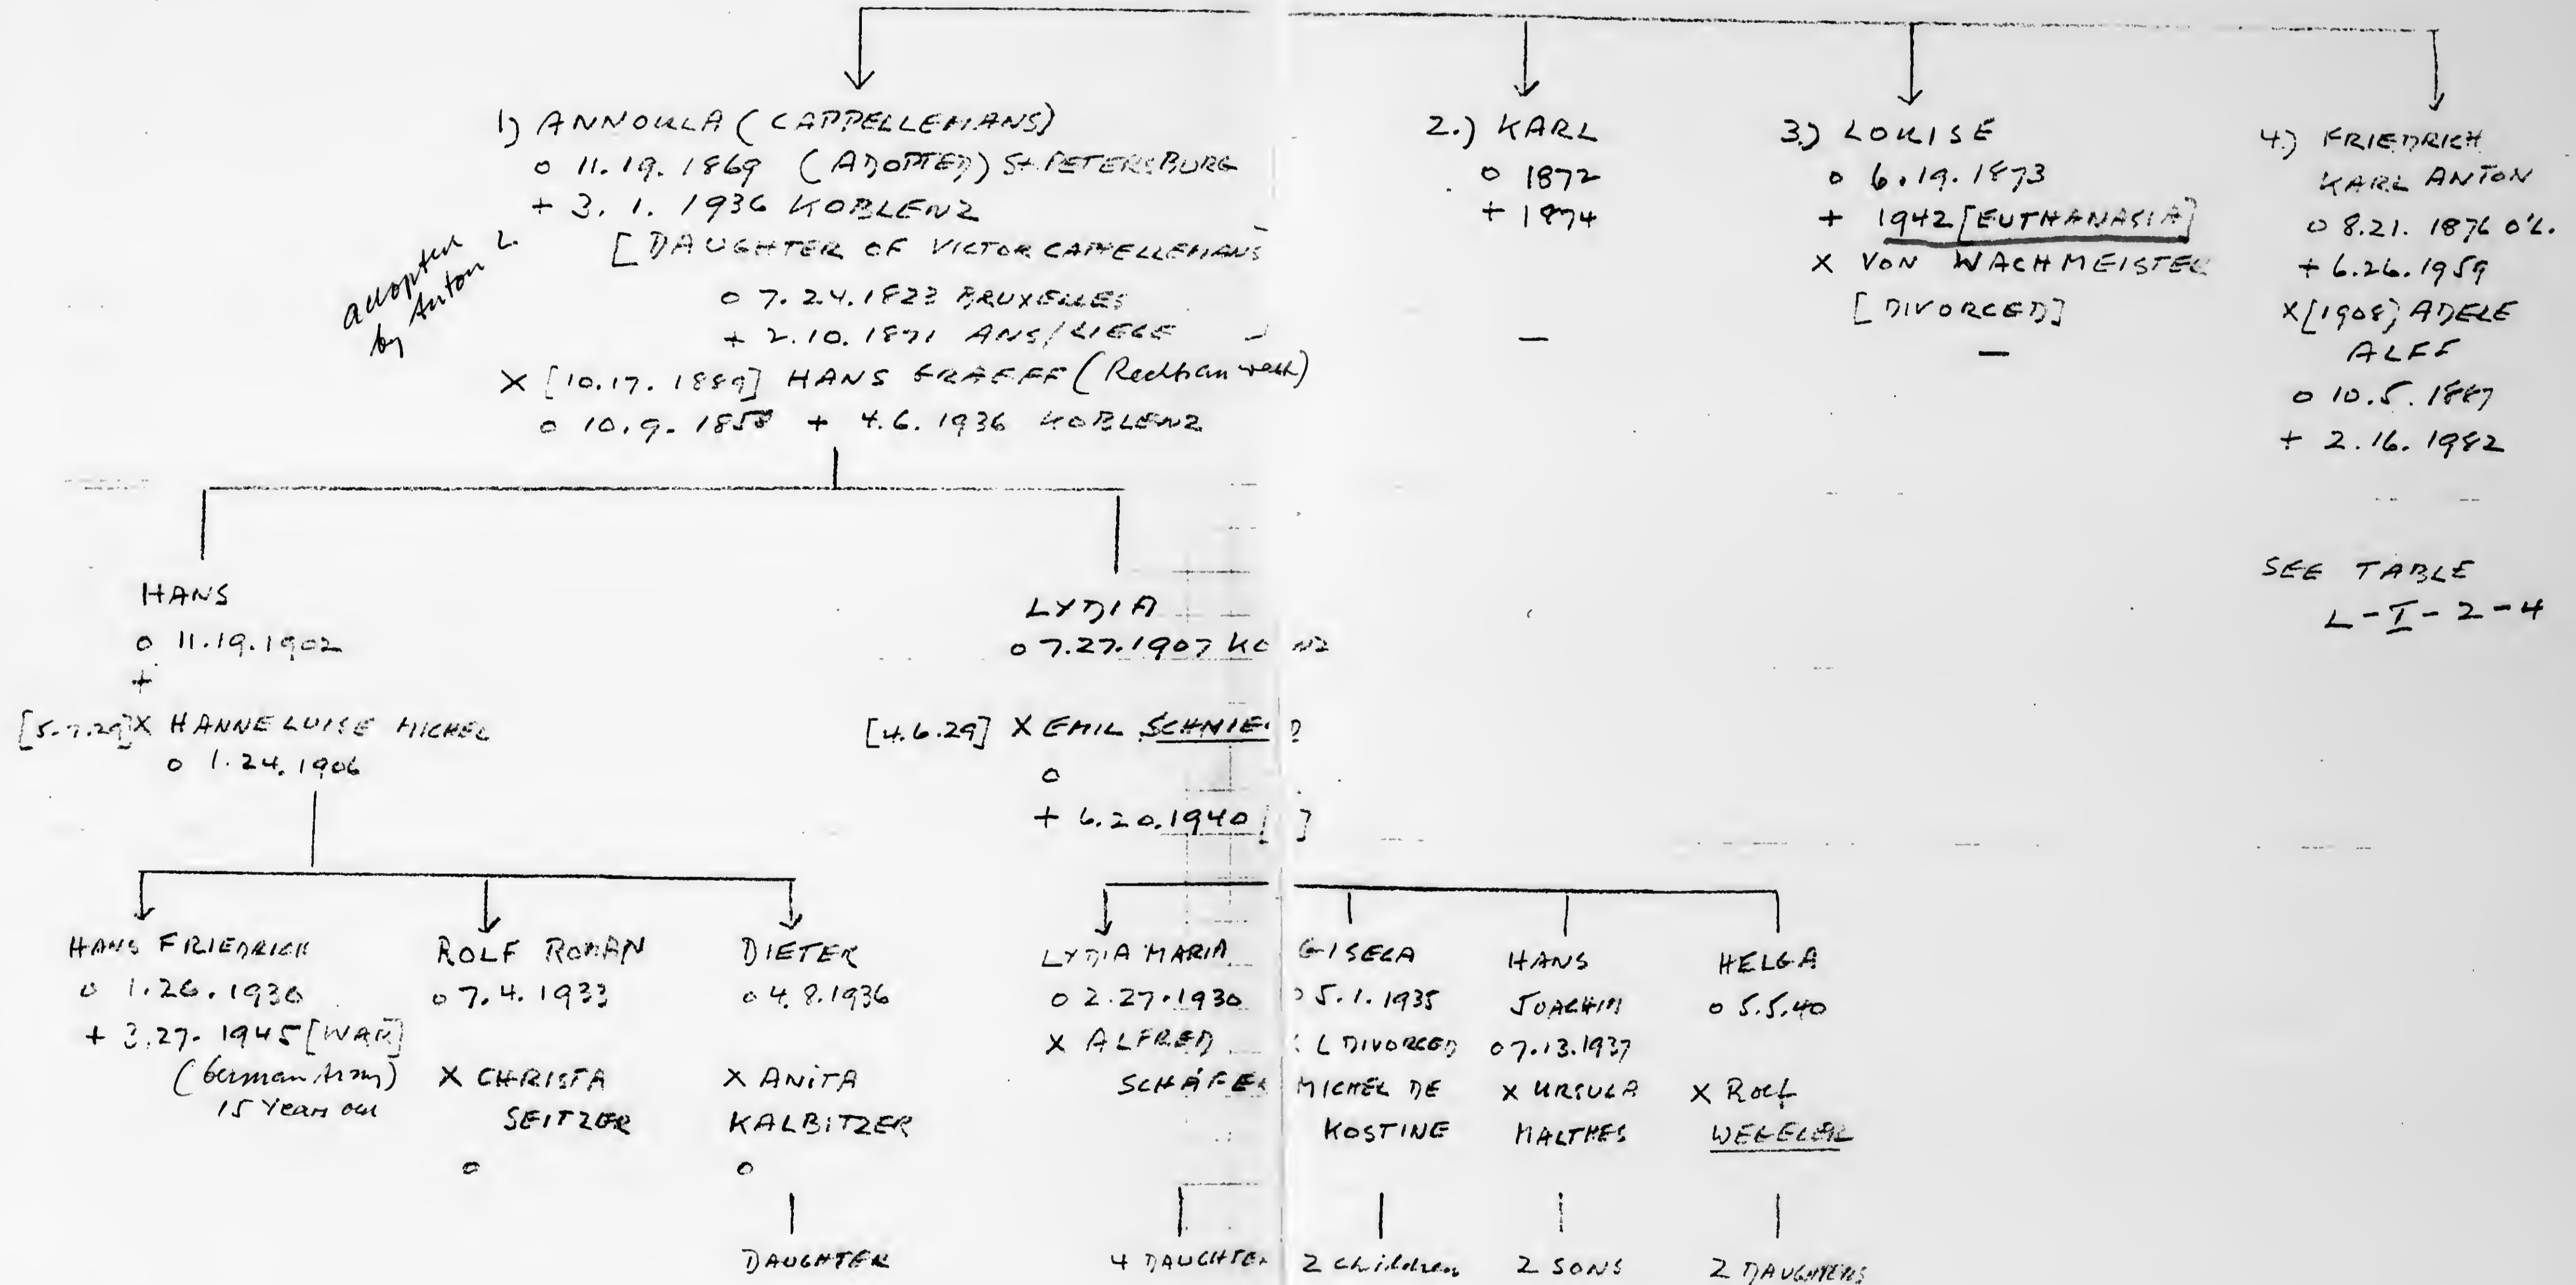 1) ANNOULA (CAPPELLEMANS)
o 11.19.1869 (ADOPTED) St. PETERSBURG
+ 3. 1. 1936 KOBLENZ
adopted
by Anton L.
[DAUGHTER OF VICTOR CAPPELLEMANS
o 7.24.1823 BRUXELLES
+ 2.10.1871 ANS/LIEGE ]
X [10.17.1889] HANS GRAEFF (Rechtsanwalt)
o 10.9.1858 + 4.6.1936 KOBLENZ
2.) KARL
o 1872
+ 1874
—
3.) LOUISE
o 6.19.1873
+ 1942 [EUTHANASIA]
X VON WACHMEISTER
[DIVORCED]
—
4.) FRIEDRICH
KARL ANTON
o 8.21.1876 O'L.
+ 6.26.1959
X [1908] ADELE
ALFF
o 10.5.1887
+ 2.16.1982
SEE TABLE
L-I-2-4
HANS
o 11.19.1902
+
[5.7.29] X HANNELUISE MICHEL
o 1.24.1906
LYDIA
o 7.27.1907 KO NZ
[4.6.29] X EMIL SCHMIE D
o
+ 6.20.1940 [ ]
HANS FRIEDRICH
o 1.26.1930
+ 3.27.1945 [WAR]
(German Army)
15 Years old
ROLF ROMAN
o 7.4.1933
X CHRISTA
SEITZER
o
DIETER
o 4.8.1936
X ANITA
KALBITZER
o
DAUGHTER
LYDIA MARIA
o 2.27.1930
X ALFRED
SCHÄFER
4 DAUGHTER
GISELA
o 5.1.1935
DIVORCED
MICHEL DE
KOSTINE
2 children
HANS
JOACHIM
o 7.13.1937
X URSULA
MALTHES
2 SONS
HELGA
o 5.5.40
X Rolf
WEGELER
2 DAUGHTERS